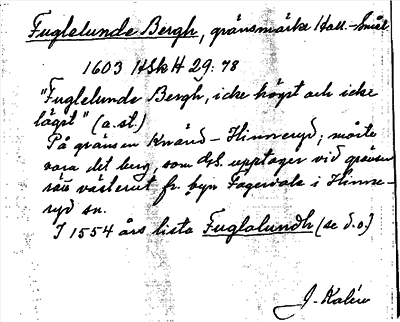 Fuglelunde Bergh, gränsmärke Hall.-Smål
1603 HSH H 29: 78
"Fuglelunde Bergh, icke högst och icke
lägst" (a.st.)
På gränsen Knäred-Hinneryd; måste
vara det berg, som GS. upptager vid gränsen
rätt västerut fr. byn Fagervik i Hinne-
ryd sn.
I 1554 års lista Fuglalundh (se d.o)
J. Kalén